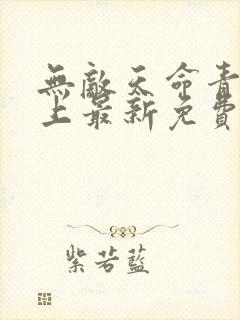 無敵天命青
上最新免費
紫若藍